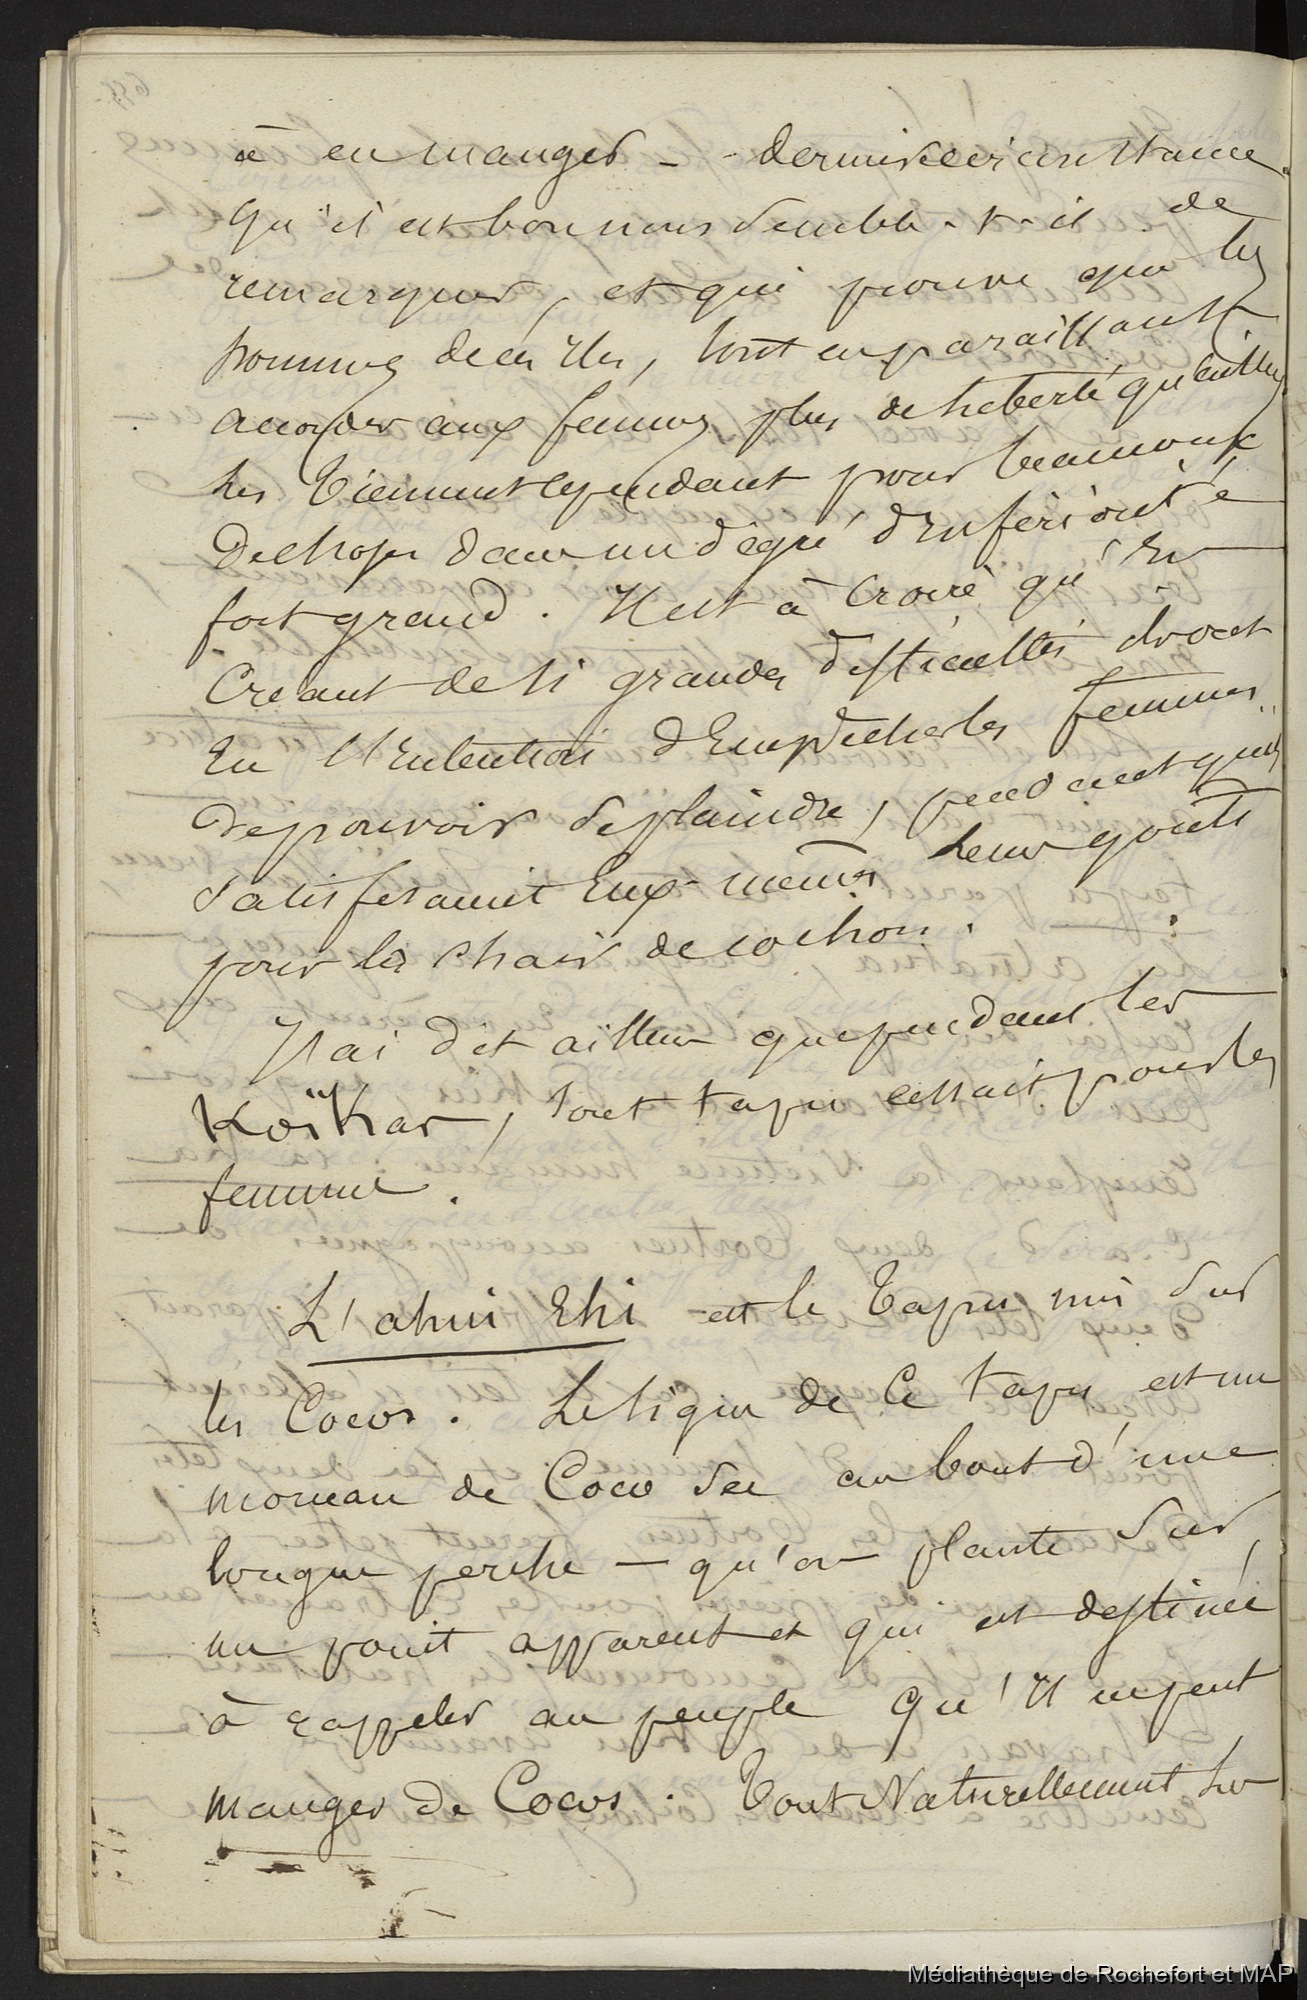 à en manger - dernière circonstance
qu'il est bon nous semble-t-il de
remarquer, et qui prouve que les
hommes de ces îles, tout en paraissant
accorder aux femmes plus de liberté qu'ailleurs
les tiennent cependant pour beaucoup
de choses dans un dégré d'Infériorité
fort grand. Il est à croire qu'En
Créant de si grandes difficultés
En l'Intention d'Empêcher les femmes
de pouvoir se plaindre, pendant qu'ils
satisfesaient Eux-mêmes leurs goûts
pour la chair de cochon.
J'ai dit ailleurs que pendant les
Koïkas, tout tapu cessait pour les
femmes.
L'ahui Ehi est le Tapu mis sur
les Cocos. Le signe de Ce tapu est un
morceau de Coco sec au bout d'une
longue perche - qu'on plante sur
un point apparent et qui est destinée
à rappeler au peuple qu'Il ne peut
manger de Cocos. Tout Naturellement les
Médiathèque de Rochefort et MAP